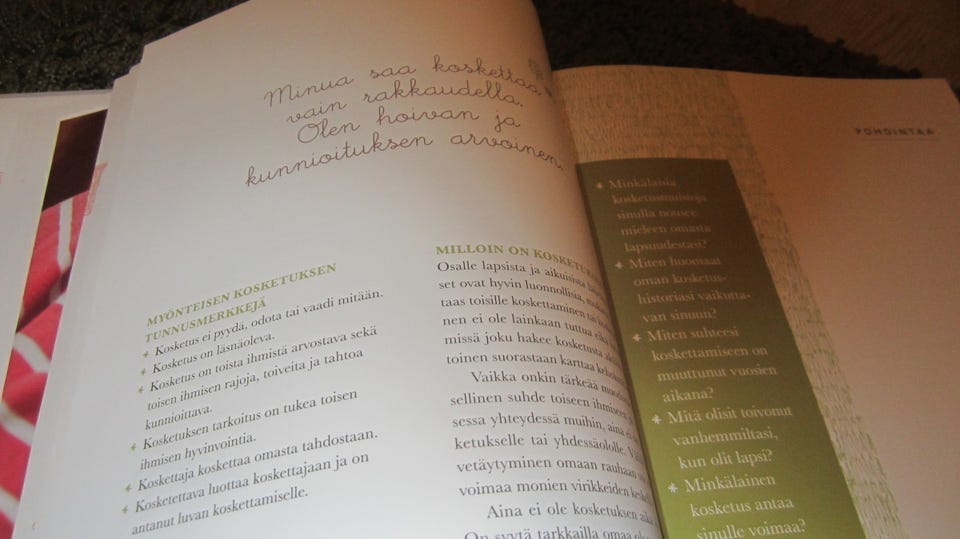 Minua saa koskettaa
vain rakkaudella.
Olen hoivan ja
kunnioituksen arvoinen.
MYÖNTEISEN KOSKETUKSEN
TUNNUSMERKKEJÄ
Kosketus ei pyydä, odota tai vaadi mitään.
Kosketus on läsnäoleva.
Kosketus on toista ihmistä arvostava sekä
toisen ihmisen rajoja, toiveita ja tahtoa
kunnioittava.
Kosketuksen tarkoitus on tukea toisen
ihmisen hyvinvointia.
Koskettaja koskettaa omasta tahdostaan.
Koskettettava luottaa koskettajaan ja on
antanut luvan koskettamiselle.
MILLOIN ON
Osalle lapsista ja aikuisista
set ovat hyvin luonnollisia,
taas toisille koskettaminen tai
nen ei ole lainkaan tuttua eikä
missä joku hakee kosketusta
toinen suorastaan karttaa
Vaikka onkin tärkeää
sellinen suhde toiseen ihmiseen
sessa yhteydessä muihin, aina ei
ketukselle tai yhdessäololle.
vetäytyminen omaan rauhaan
voimaa monien virikkeiden
Aina ei ole kosketuksen
On syytä tarkkailla omaa
POHDINTAA
Minkälaisia
kosketusmuistoja
sinulla nousee
mieleen omasta
lapsuudestasi?
Miten huomaat
oman kosketus-
historiasi vaikutta-
van sinuun?
Miten suhteesi
koskettamiseen on
muuttunut vuosien
aikana?
Mitä olisit toivonut
vanhemmiltasi,
kun olit lapsi?
Minkälainen
kosketus antaa
sinulle voimaa?